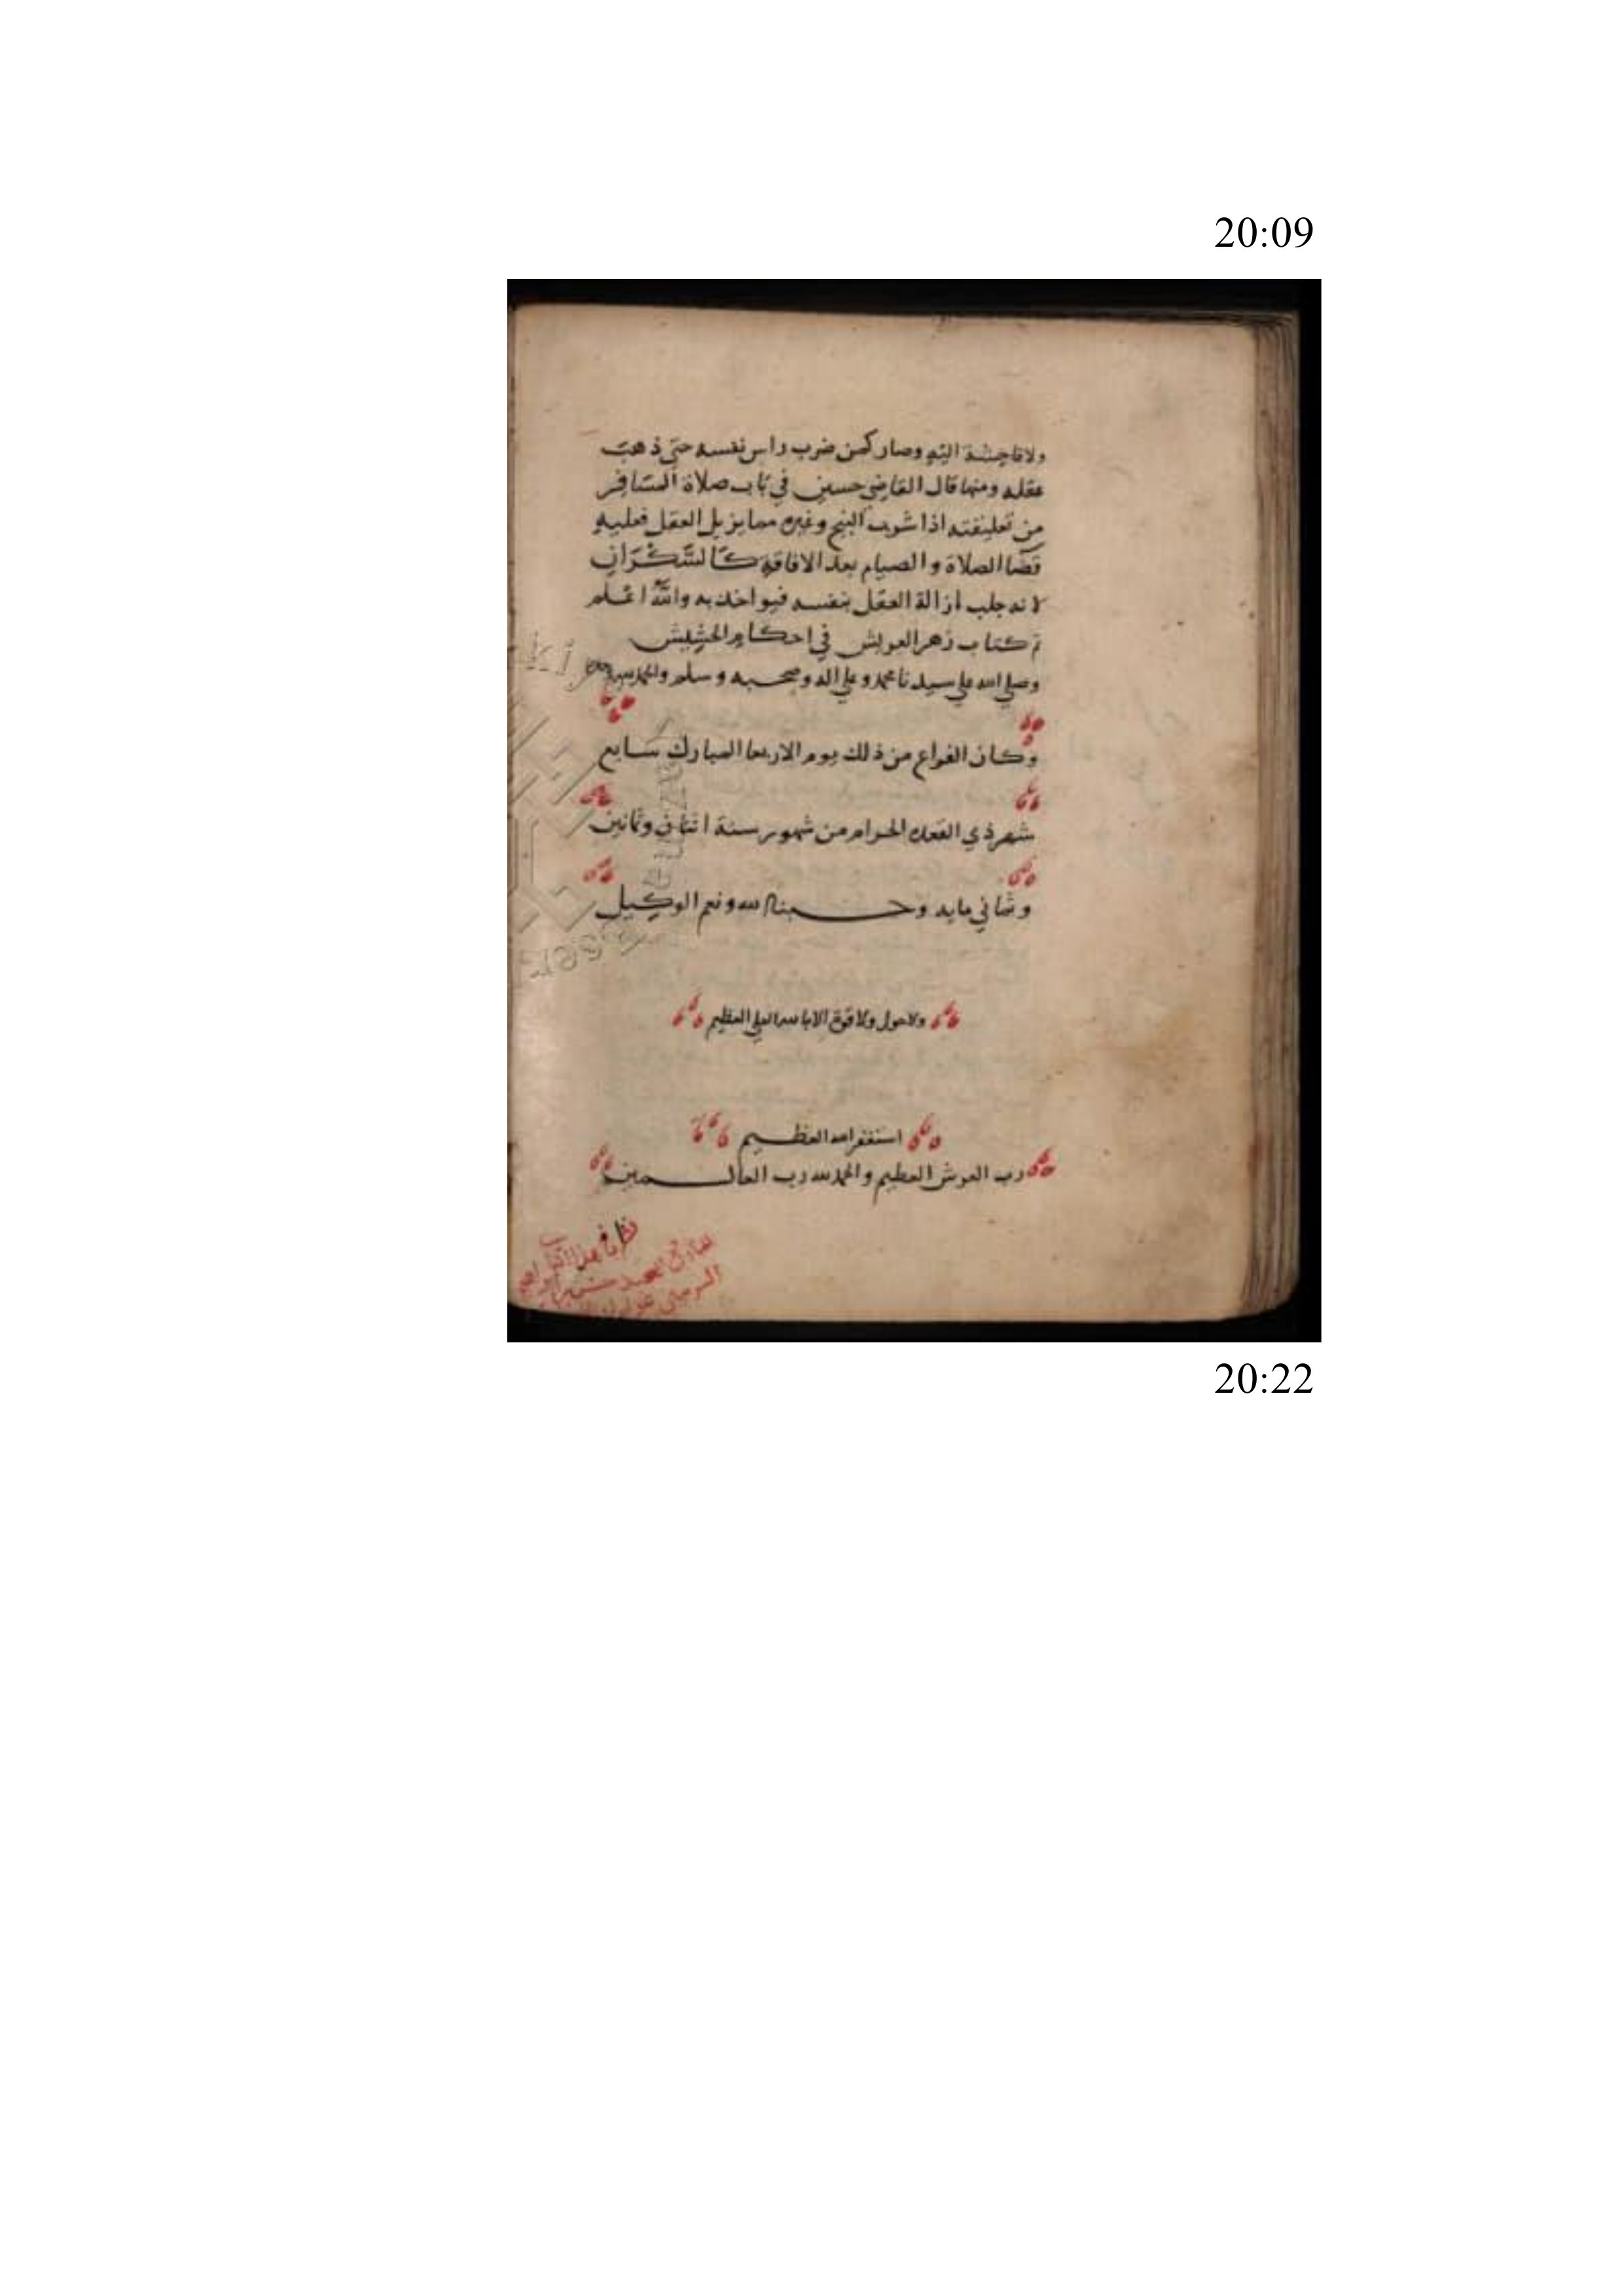 20:09
ولا حاجشة اليه وصار كمن ضرب راس نفسه حتى ذهب
عقله ومنها قال القاضي حسين في باب صلاة المسافر
من تعليقته اذا شرب البنج وغيره مما يزيل العقل فعليه
قضا الصلاة والصيام بعد الافاقة كالسَّكْرَان
لانه جلب ازالة العقل بنفسه فيواخذ به والله اعلم
تم كتاب زهر العريش في احكام الحشيش
وصلى الله على سيدنا محمد وعلى اله وصحبه وسلم والحمد لله
وكان الفراغ من ذلك يوم الاربعا المبارك سابع
شهر ذي القعدة الحرام من شهور سنة اثنان وثمانين
وثماني مايه وحسبنا الله ونعم الوكيل
ولا حول ولا قوة الا بالله العلي العظيم
استغفر الله العظيم
رب العرش العظيم والحمد لله رب العالمين
نظر في هذا الكتاب
20:22